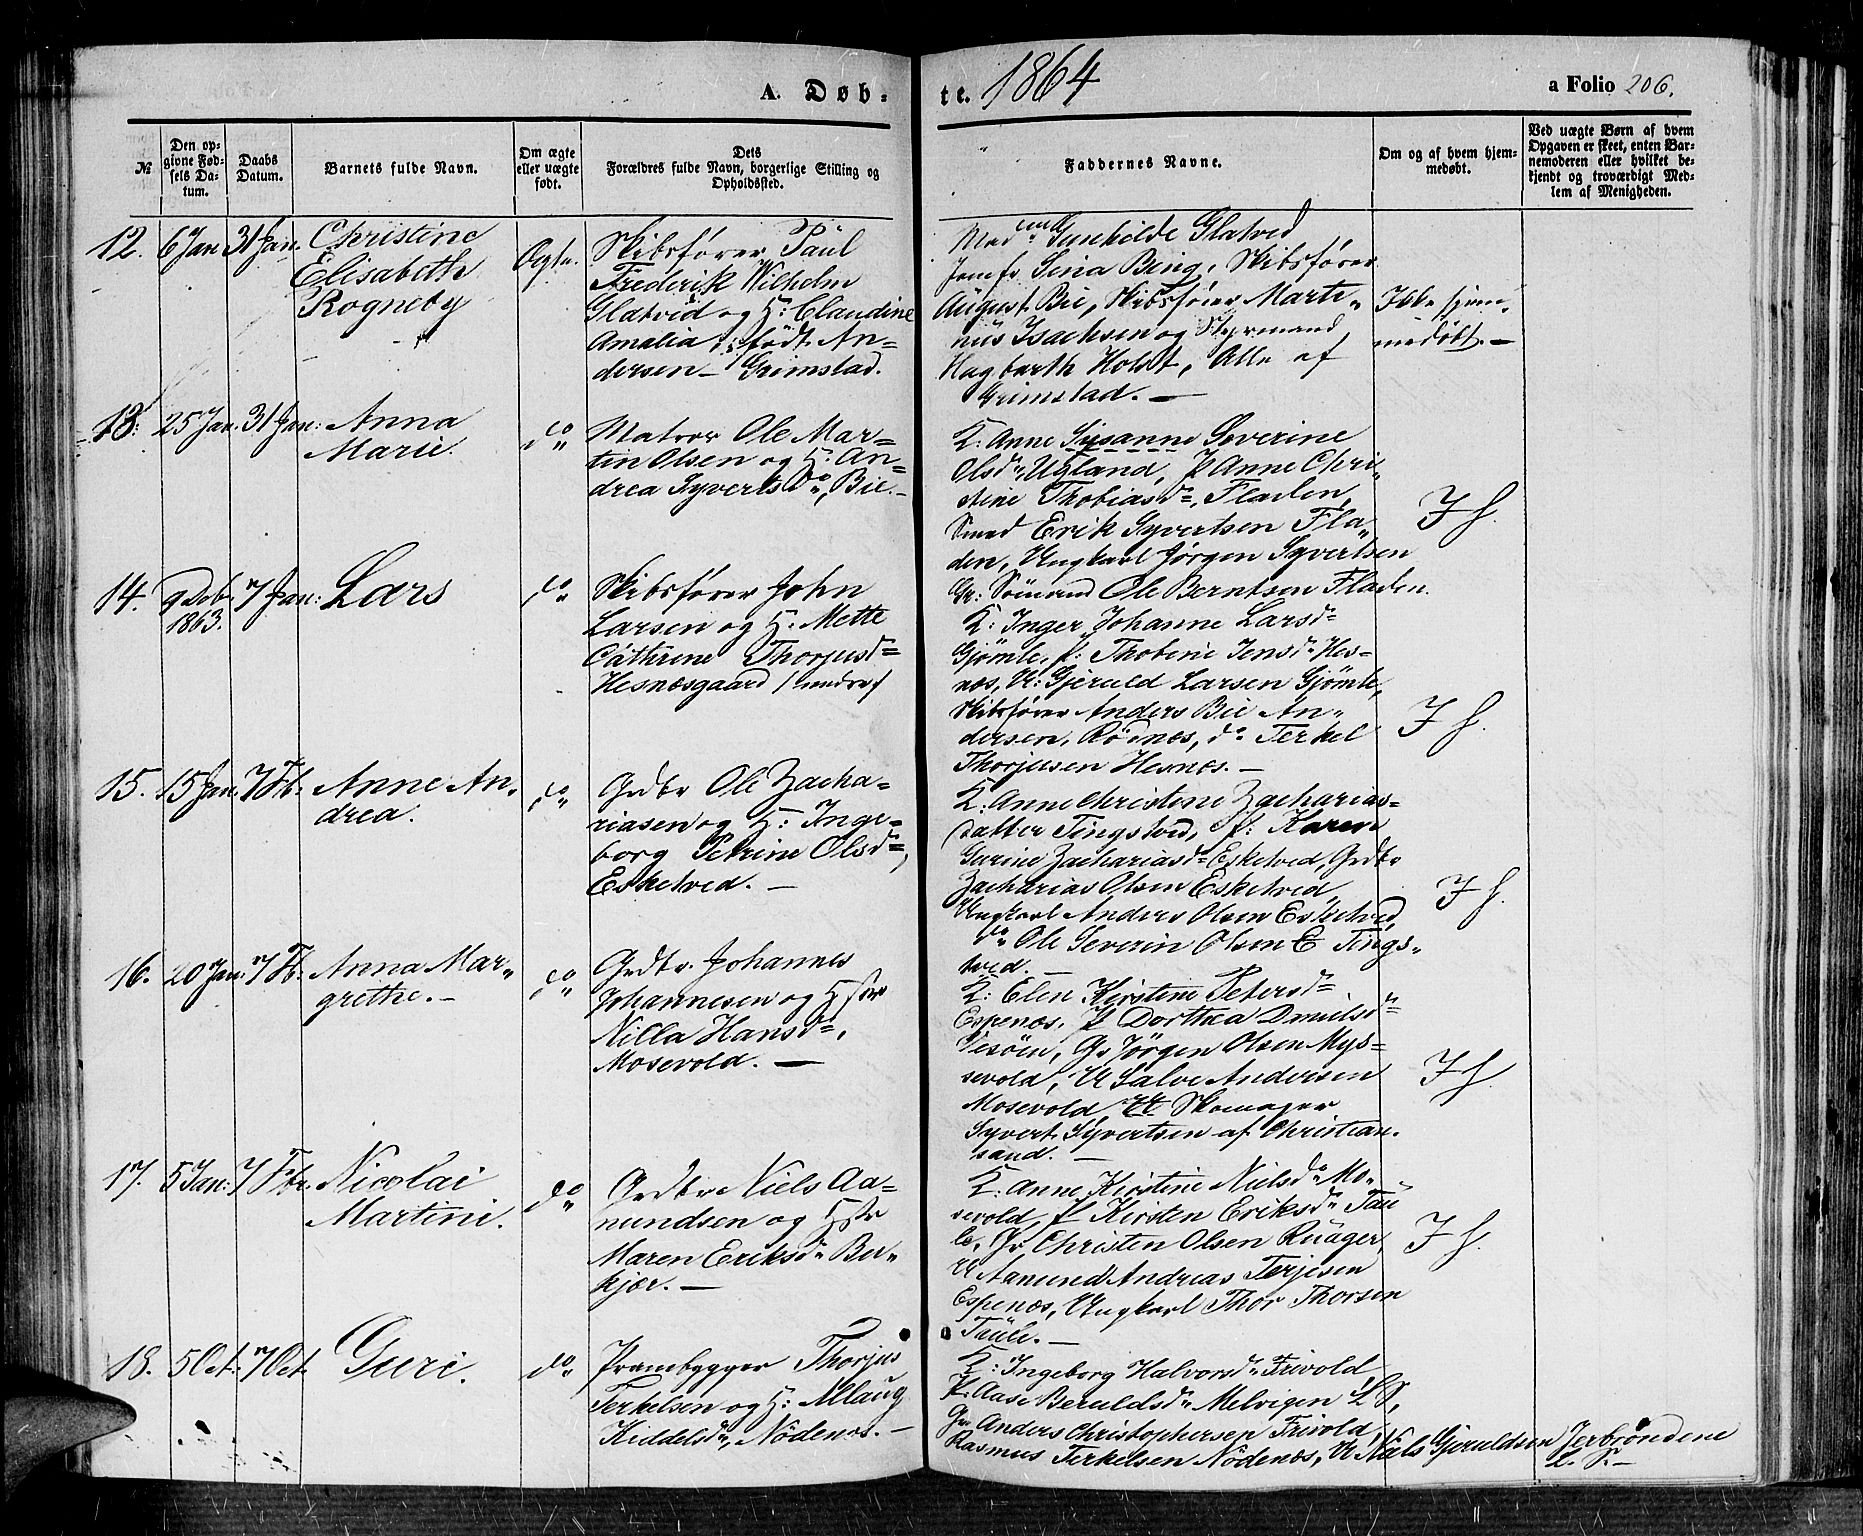 A. Døb-
te. 1864
a Folio 206.
№
Den op-
givne Fød-
sels Da-
tum.
Daabs
Datum.
Barnets fulde Navn.
Om ægte
eller uægte
født.
Dets
Forældres fulde Navn, borgerlige Stilling og
Opholdssted.
Faddernes Navne.
Om og af hvem hjem-
medøbt.
Ved uægte Børn af hvem
Opgaven er skeet, enten Bar-
nemoderen eller hvilket be-
kjendt og troværdigt Med-
lem af Menigheden.
12. 6 Jan 31 Jan.
Christine
Elisabeth
Rogneby
Ægte.
Skibsfører Paul
Frederik Wilhelm
Glatved og H: Claudine
Amalia, født An-
dersen - Grimstad.
Gunhilde Glatved
Jomfr. Sina Bing, Skibsfører
August Bie, Skibsfører Marti-
nus Isachsen og Styrmand
Hagbarth Holst, Alle af
Grimstad. -
Ikke hjem-
medøbt. -
13. 25 Jan. 31 Jan:
Anna
Marie.
do
Matros Ole Mar-
tin Olsen og H. An-
drea Syvertsdr, Bie. -
K: Anne Susanne Severine
Olsdr, Ugland, P Anne Chri-
stine Thobiasdr, Fladen,
Smed Erik Syvertsen Fla-
den, Ungkarl Jørgen Syvertsen
Gr: Sömand Ole Berntsen Fladen.
I H.
14. 9 Dcb. 1863. 7 Jan:
Lars
do
Skibsfører John
Larsen og H. Mette
Cathrine Thorjusdr
Hesnæsgaard
K: Inger Johanne Larsdr
Gjömle, P: Thobine Jensdr Hes-
næs, U: Gjeruld Larsen Gjömle,
Skibsfører Anders Bie An-
dersen, Rönnes, do Terkel
Thorjusen Hesnæs. -
I H.
15. 15 Jan. 7 Fb.
Anne An-
drea.
do
Grdbr Ole Zacha-
riasen og H: Inge-
borg Petrine Olsdr,
Esketved. -
K: Anne Christine Zacharias-
datter Tingstved, P: Karen
Gurine Zachariasdr Esketved, Grdbr
Zacharias Olsen Esketved,
Ungkarl Anders Olsen Esketved,
do Ole Severin Olsen E Tings-
tved. -
I H.
16. 20 Jan: 7 Fb.
Anna Mar-
grethe. -
do
Grdbr. Johannes
Johannesen og Hstr
Nilla Hansdr,
Mosevold. -
K: Elen Kirstine Petersdr
Espenæs, P Dorthea Danielsdr
Vesöen, G: Jörgen Olsen Mys-
sevold, U Salve Andersen
Mosevold, Skomager
Syvert Syvertsen af Christian-
sand. -
I H.
17. 5 Jan: 7 Fbr.
Nicolai
Martini.
do
Grdbr Niels Aa-
nundsen og Hstr
Maren Eriksdr Ber-
kjær. -
K: Anne Kirstine Nielsdr Mo-
sevold, P Kirsten Eriksdr Tau
le, Gr Christen Olsen Ruager,
U Aanund Andreas Terjesen
Espenæs, Ungkarl Thor Thorsen
Taule. -
I H.
18. 5 Oct: 7 Oct.
Guri.
do
Prambygger Thorjus
Terkelsen og H: Allaug
Kiddelsdr, Nödenæs. -
K: Ingeborg Halvorsdr Frivold,
P: Aase Beruldsdr Melvigen L S,
Gr Anders Christophersen Frivold,
Rasmus Terkelsen Nödenæs, U Niels Gjeruldsen Jerbröndene
L. S. -